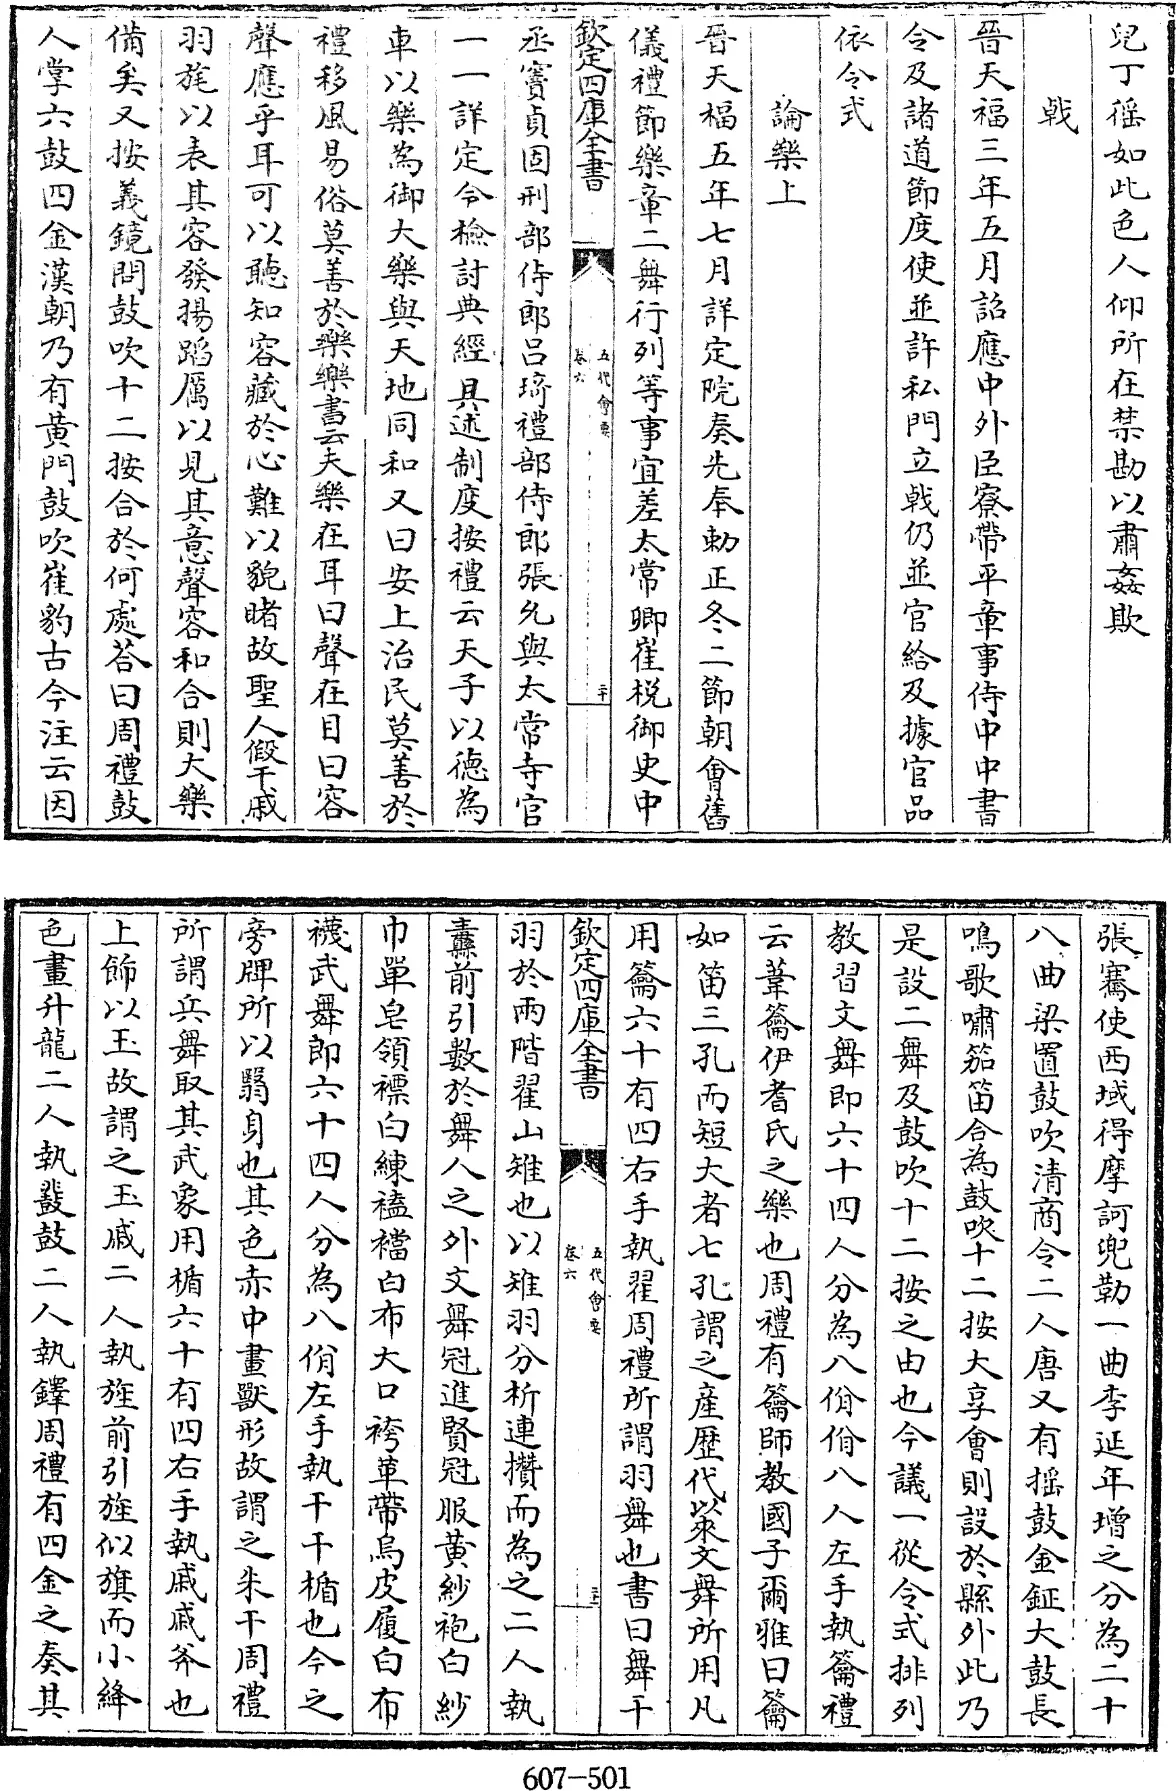 兒丁徭如此色人仰所在禁勘以肅姦欺
戟
晉天福三年五月詔應中外臣寮帶平章事侍中中書
令及諸道節度使並許私門立戟仍並官給及據官品
依令式
論樂上
晉天福五年七月詳定院奏先奉勅正冬二節朝會舊
儀禮節樂章二舞行列等事宜差太常卿崔梲御史中
欽定四庫全書
五代會要
卷六
二十
丞竇貞固刑部侍郎呂琦禮部侍郎張允與太常寺官
一一詳定令檢討典經具述制度按禮云天子以德為
車以樂為御大樂與天地同和又曰安上治民莫善於
禮移風易俗莫善於樂樂書云夫樂在耳曰聲在目曰容
聲應乎耳可以聽知容藏於心難以貌睹故聖人假干戚
羽旄以表其容發揚蹈厲以見其意聲容和合則大樂
備矣又按義鏡問鼓吹十二按合於何處答曰周禮鼓
人掌六鼓四金漢朝乃有黃門鼓吹崔豹古今注云因
張騫使西域得摩訶兜勒一曲李延年增之分為二十
八曲梁置鼓吹清商令二人唐又有摇鼓金鉦大鼓長
鳴歌嘯笳笛合為鼓吹十二按大享會則設於縣外此乃
是設二舞及鼓吹十二按之由也今議一從令式排列
教習文舞即六十四人分為八佾佾八人左手執籥禮
云葦籥伊耆氏之樂也周禮有籥師教國子爾雅曰籥
如笛三孔而短大者七孔謂之産歷代以來文舞所用凡
用籥六十有四右手執翟周禮所謂羽舞也書曰舞干
欽定四庫全書
五代會要
卷六
二十一
羽於兩階翟山雉也以雉羽分析連攢而為之二人執
纛前引數於舞人之外文舞冠進賢冠服黃紗袍白紗
巾單皂領褾白練䙆襠白布大口袴革帶烏皮履白布
襪武舞即六十四人分為八佾左手執干干楯也今之
旁牌所以翳身也其色赤中畫獸形故謂之朱干周禮
所謂兵舞取其武象用楯六十有四右手執戚戚斧也
上飾以玉故謂之玉戚二人執旌前引旌似旗而小絳
色畫升龍二人執鼗鼓二人執鐸周禮有四金之奏其
607-501